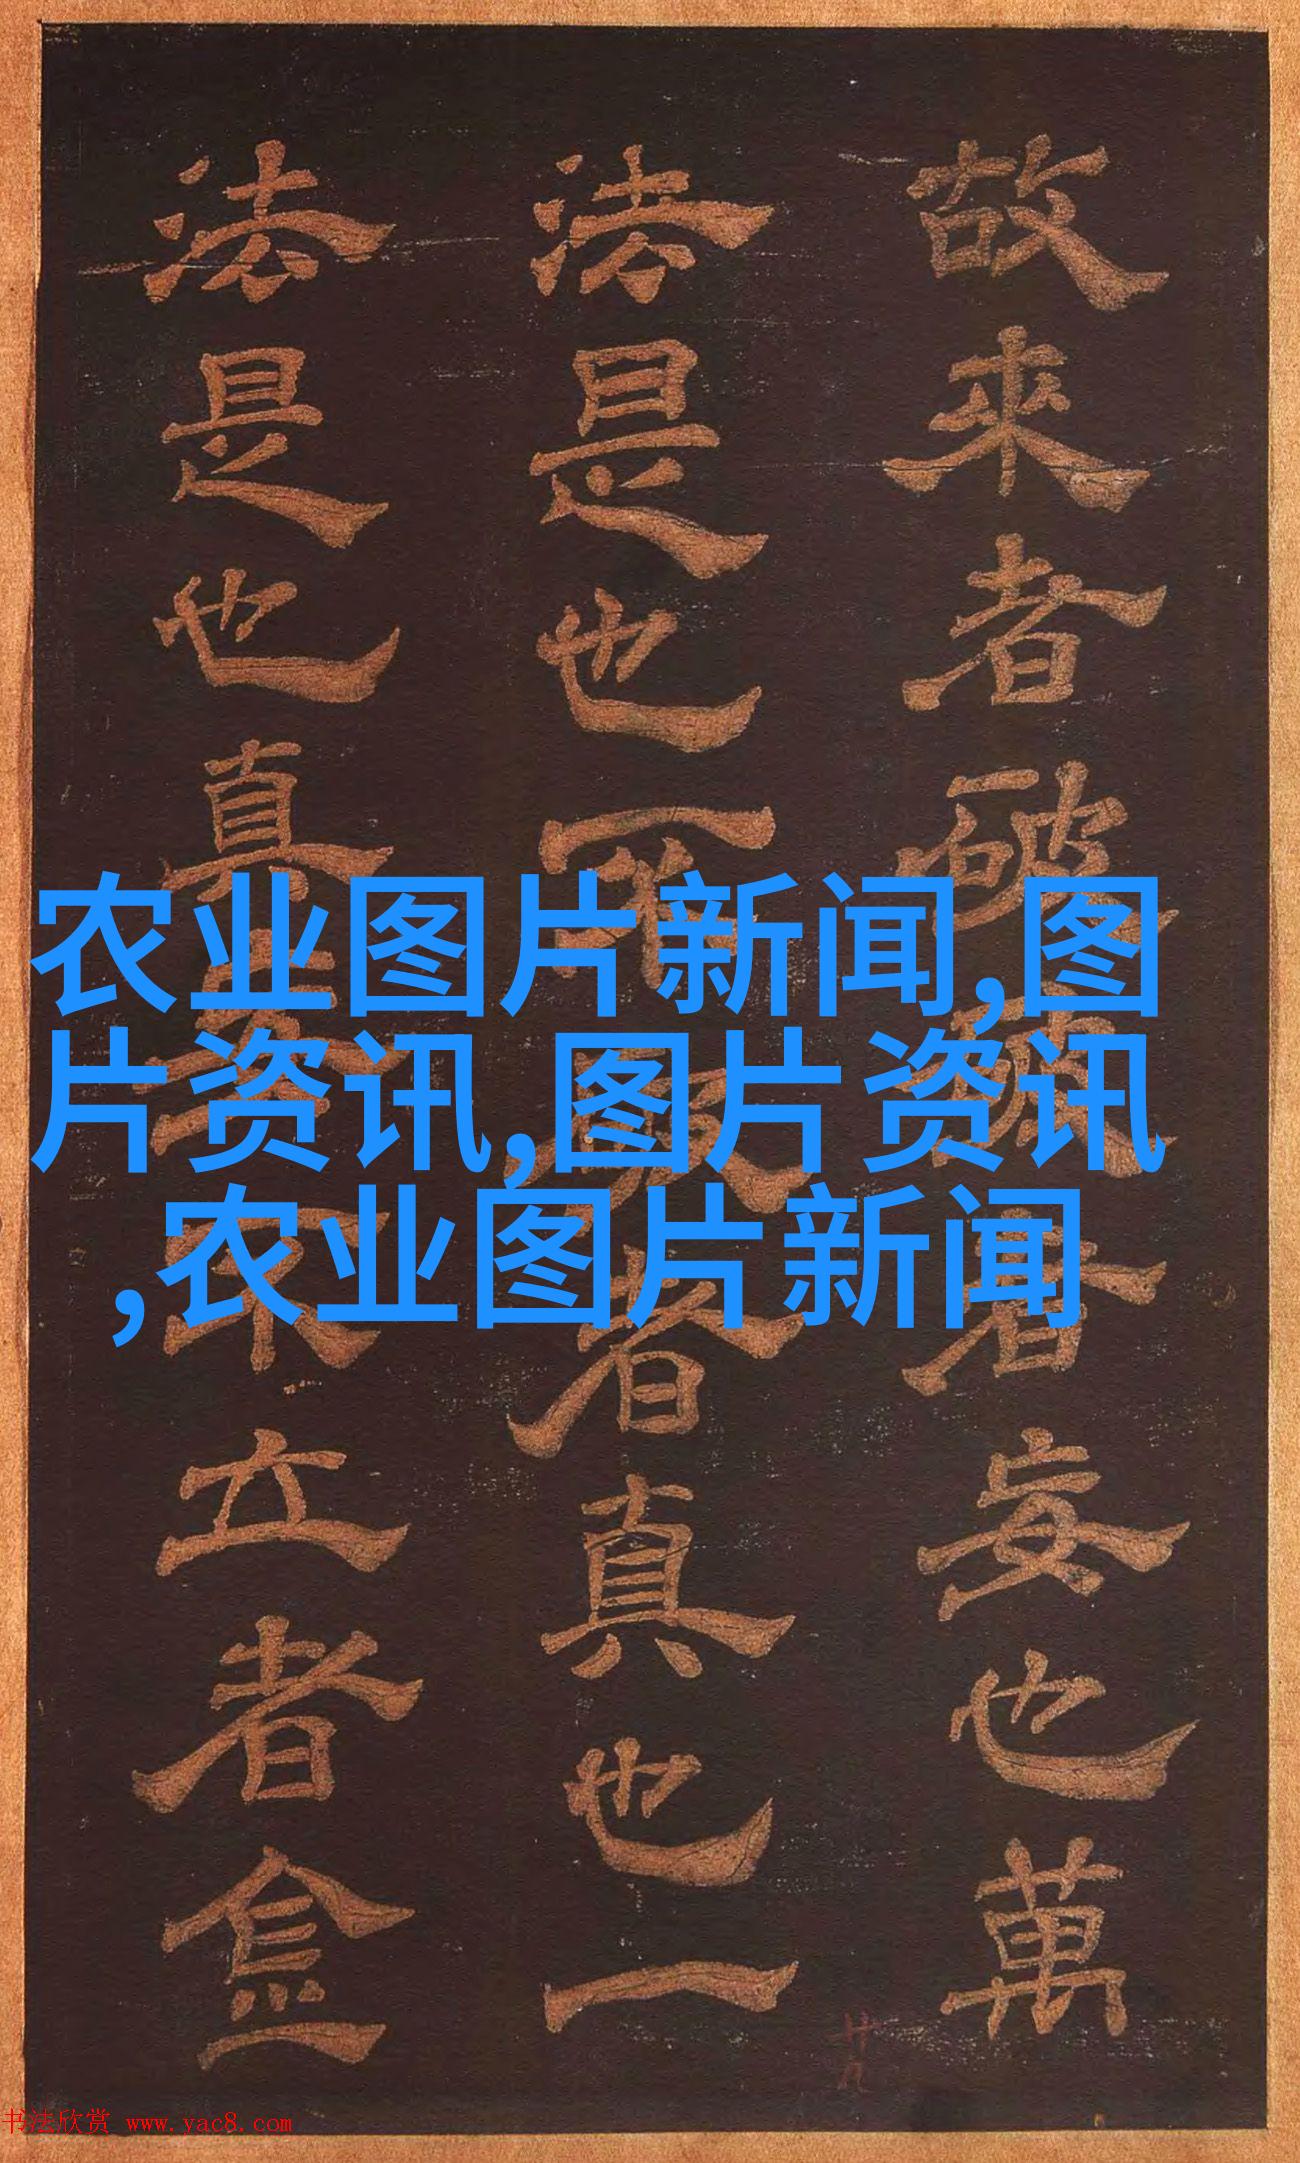 故來者破者妄也萬
法是也不破者真也一
法是也真妄不立者僉
农业图片新闻,图
片资讯,图片资讯
,农业图片新闻
书法欣赏 www.yac8.com